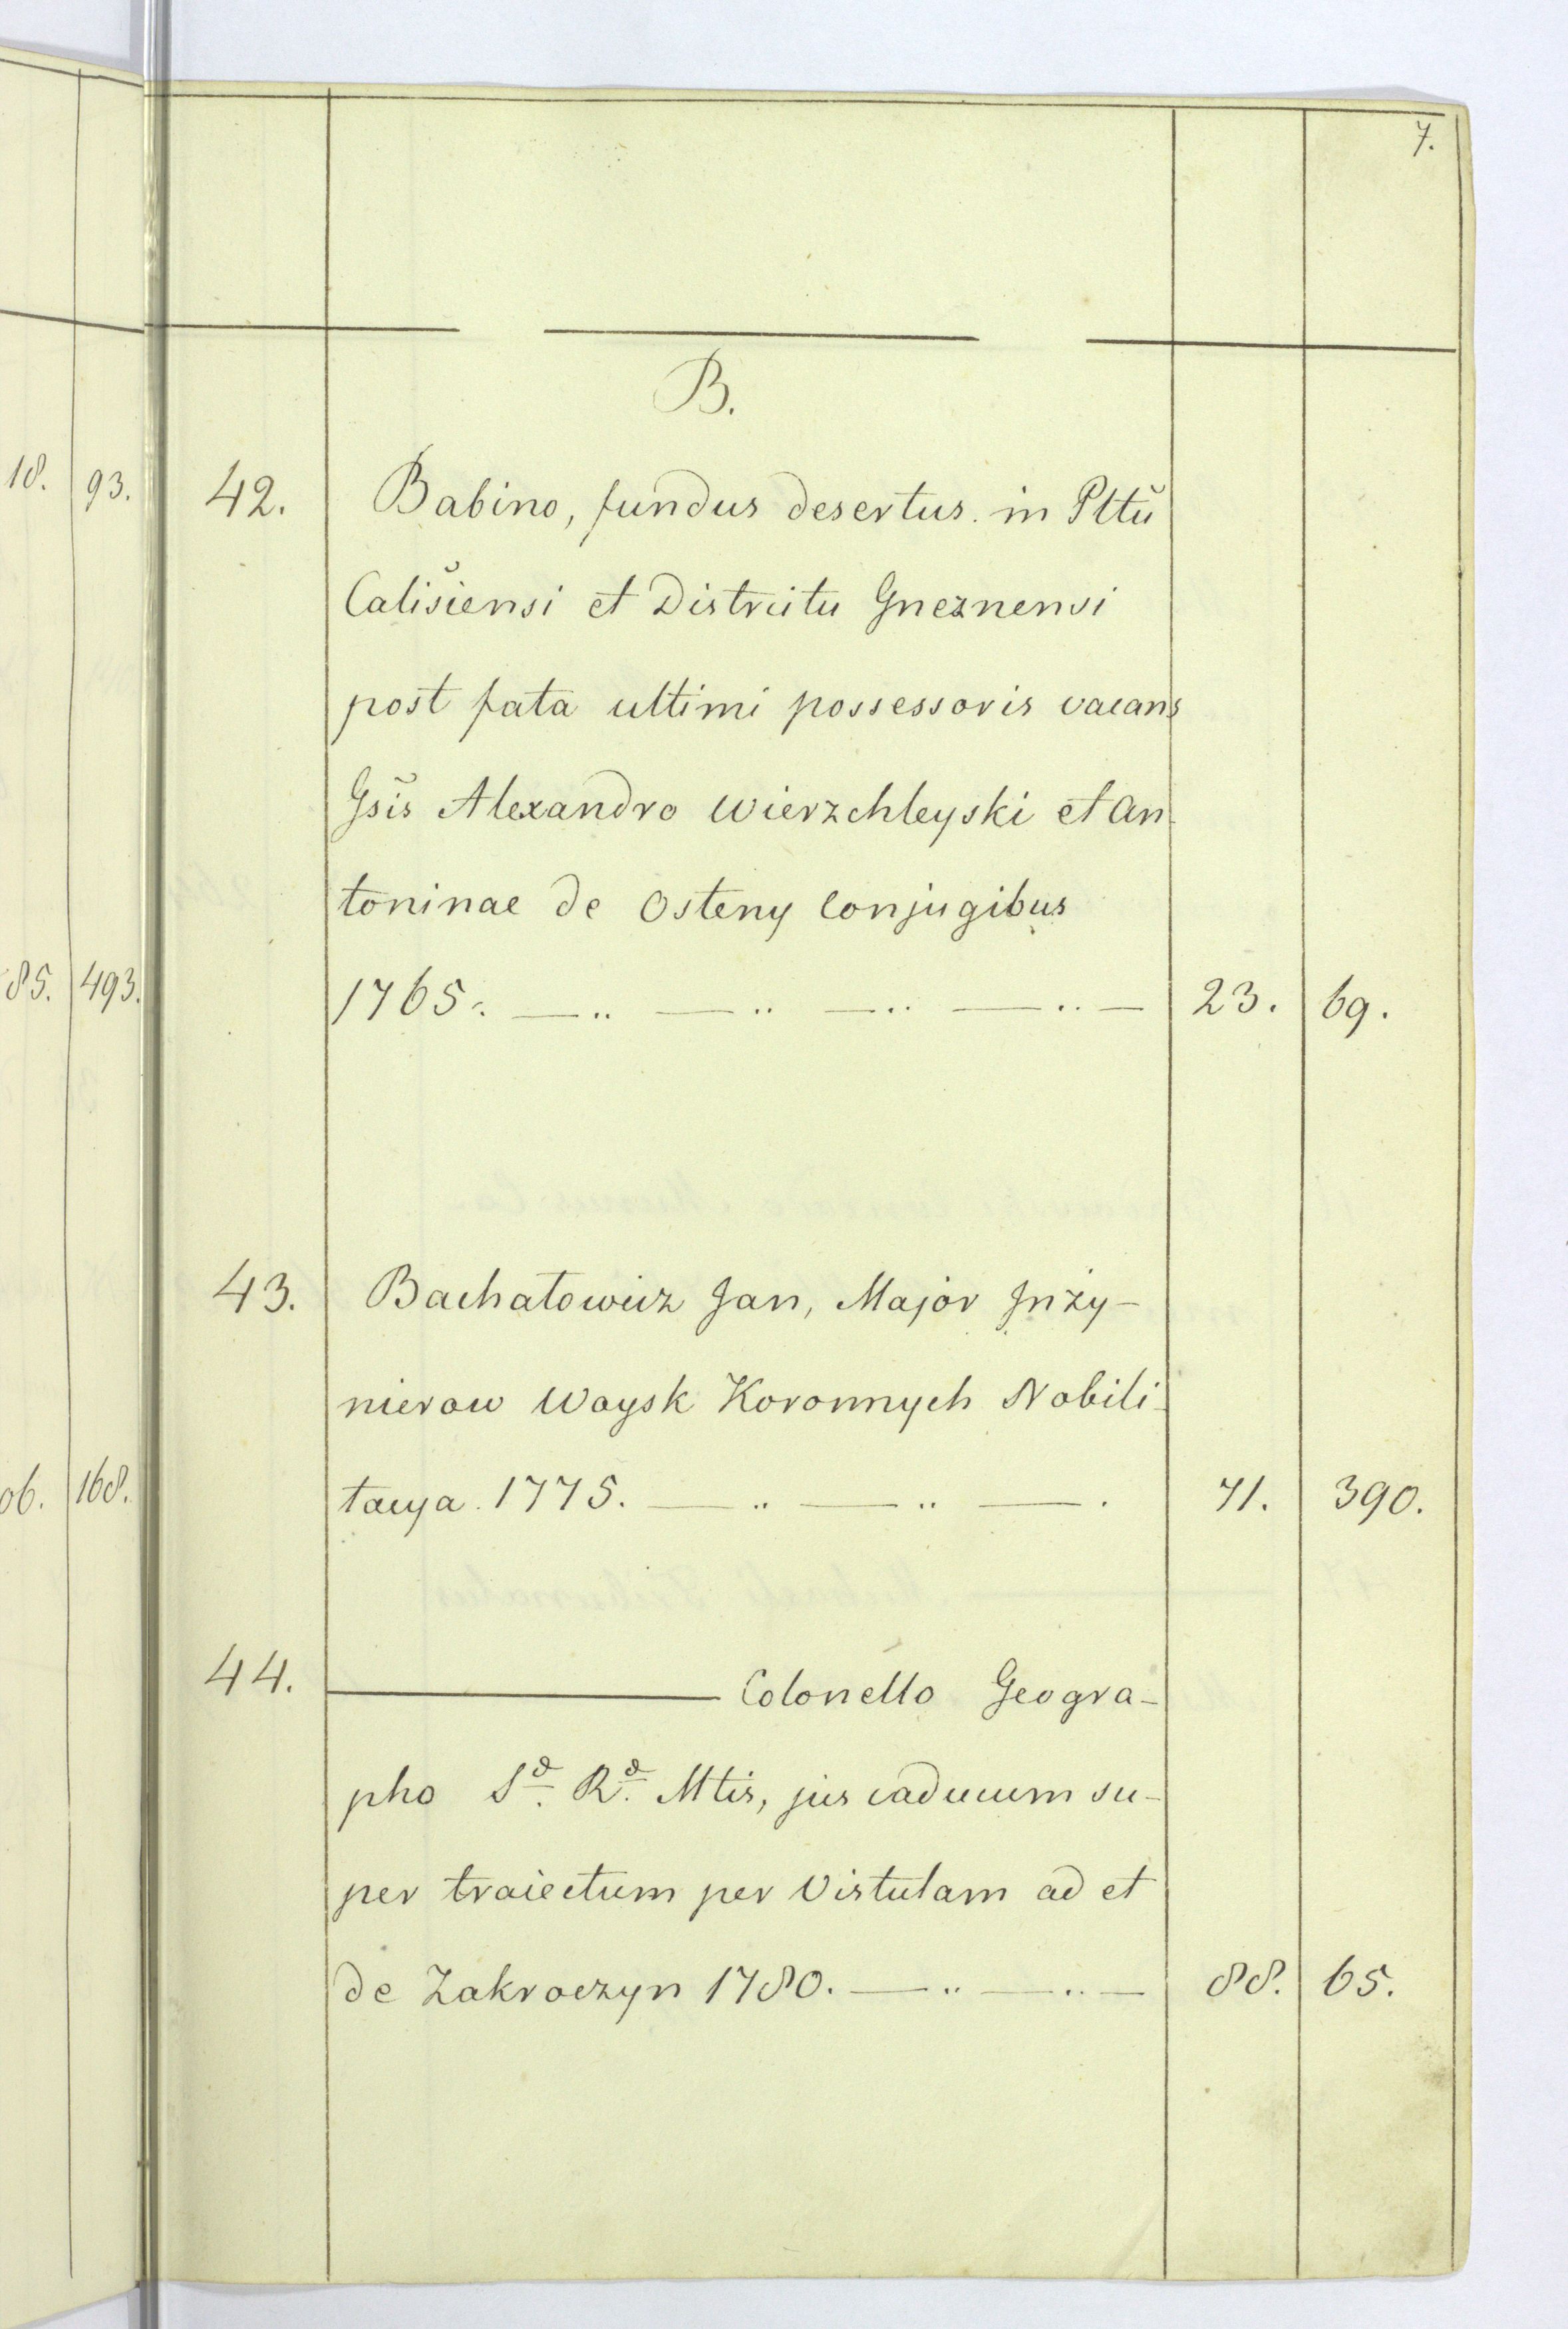 7.
B.
18. 93. 42. Babino, fundus desertus. in Pttũ
Cališiensi et Districtu Gneznensi
post fata ultimi possessoris vacans
Gsĩs Alexandro Wierzchleyski et An-
toninae de Osteny Conjugibus
85. 493. 1765. — .. — .. — .. — .. — 23. 69.
43. Bachatowicz Jan, Major Jnży-
nierow Woysk Koronnych Nobili-
06. 168. tacya. 1775. — .. — .. — . 71. 390.
44. ——— Colonello Geogra-
pho S. R. Mtis, jus caducum su-
per traiectum per Vistulam ad et
de Zakroczyn 1780. — .. — .. — 88. 65.